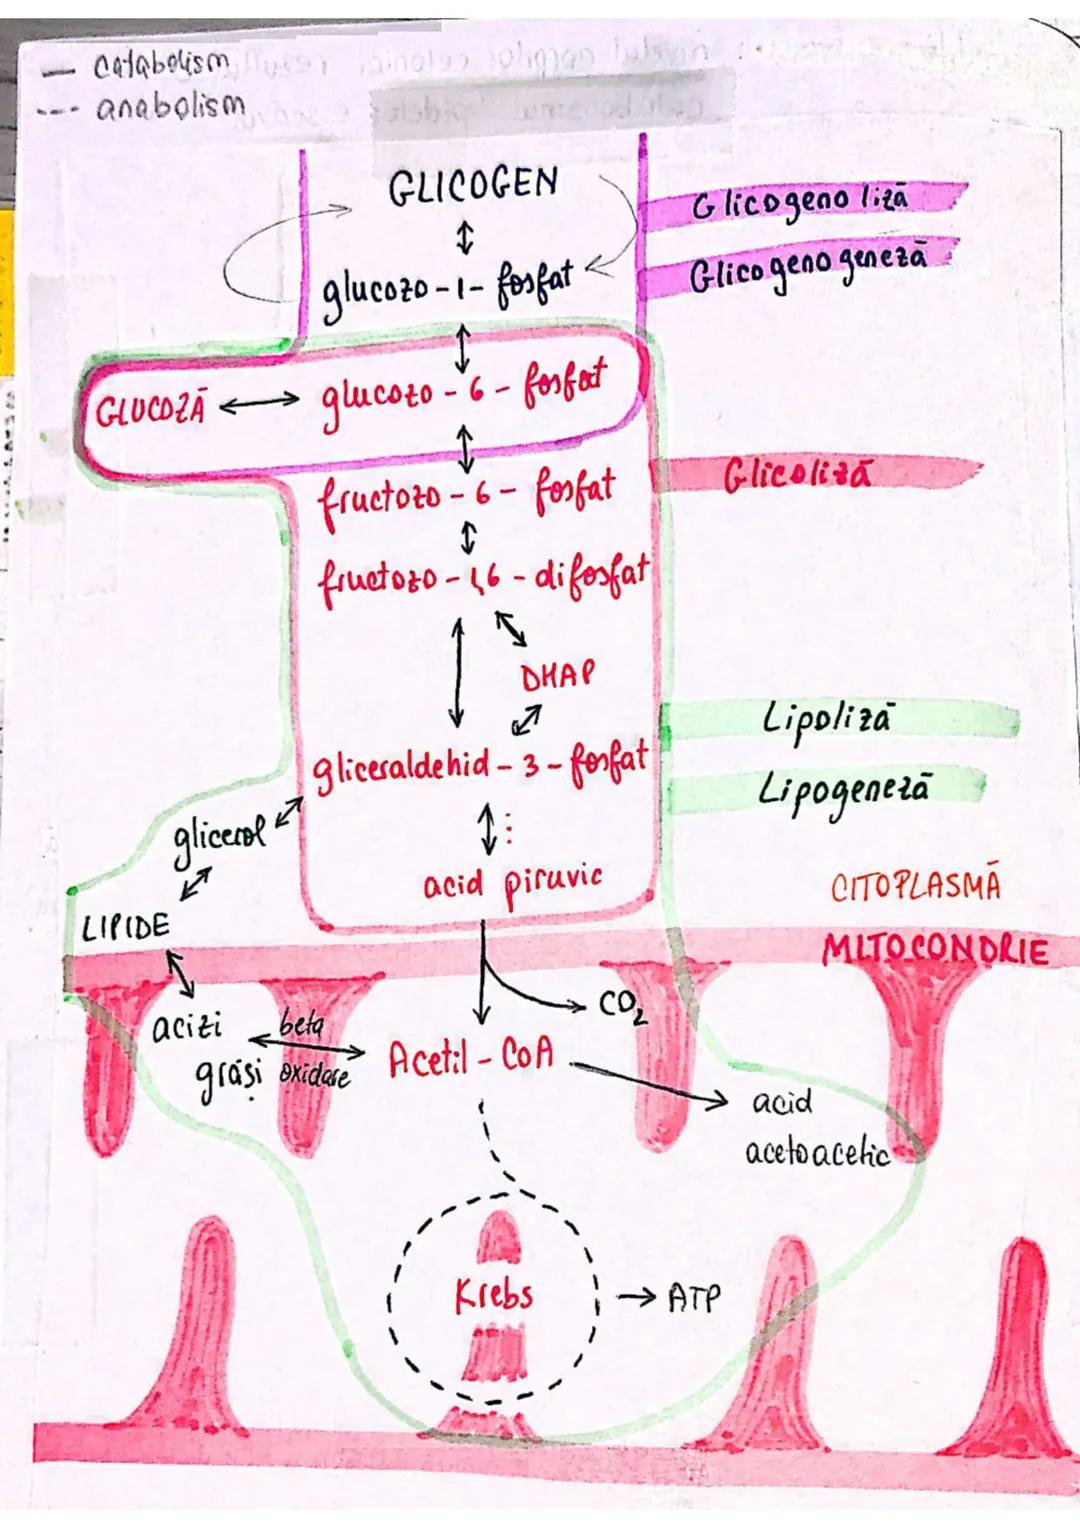 — catabolism
--- anabolism
GLICOGEN
glucozo-1-fosfat
Glicogenoliză
Glicogenogeneză
GLUCOZĂ
glucozo-6-fosfat
fructozo-6-fosfat
Glicoliză
fructozo-1,6-difosfat
DHAP
gliceraldehid-3-fosfat
Lipoliză
Lipogeneză
glicerol
acid piruvic
CITOPLASMĂ
LIPIDE
MITOCONDRIE
CO2
acizi
grași
beta
oxidare
Acetil-CoA
acid
acetoacetic
Krebs
ATP